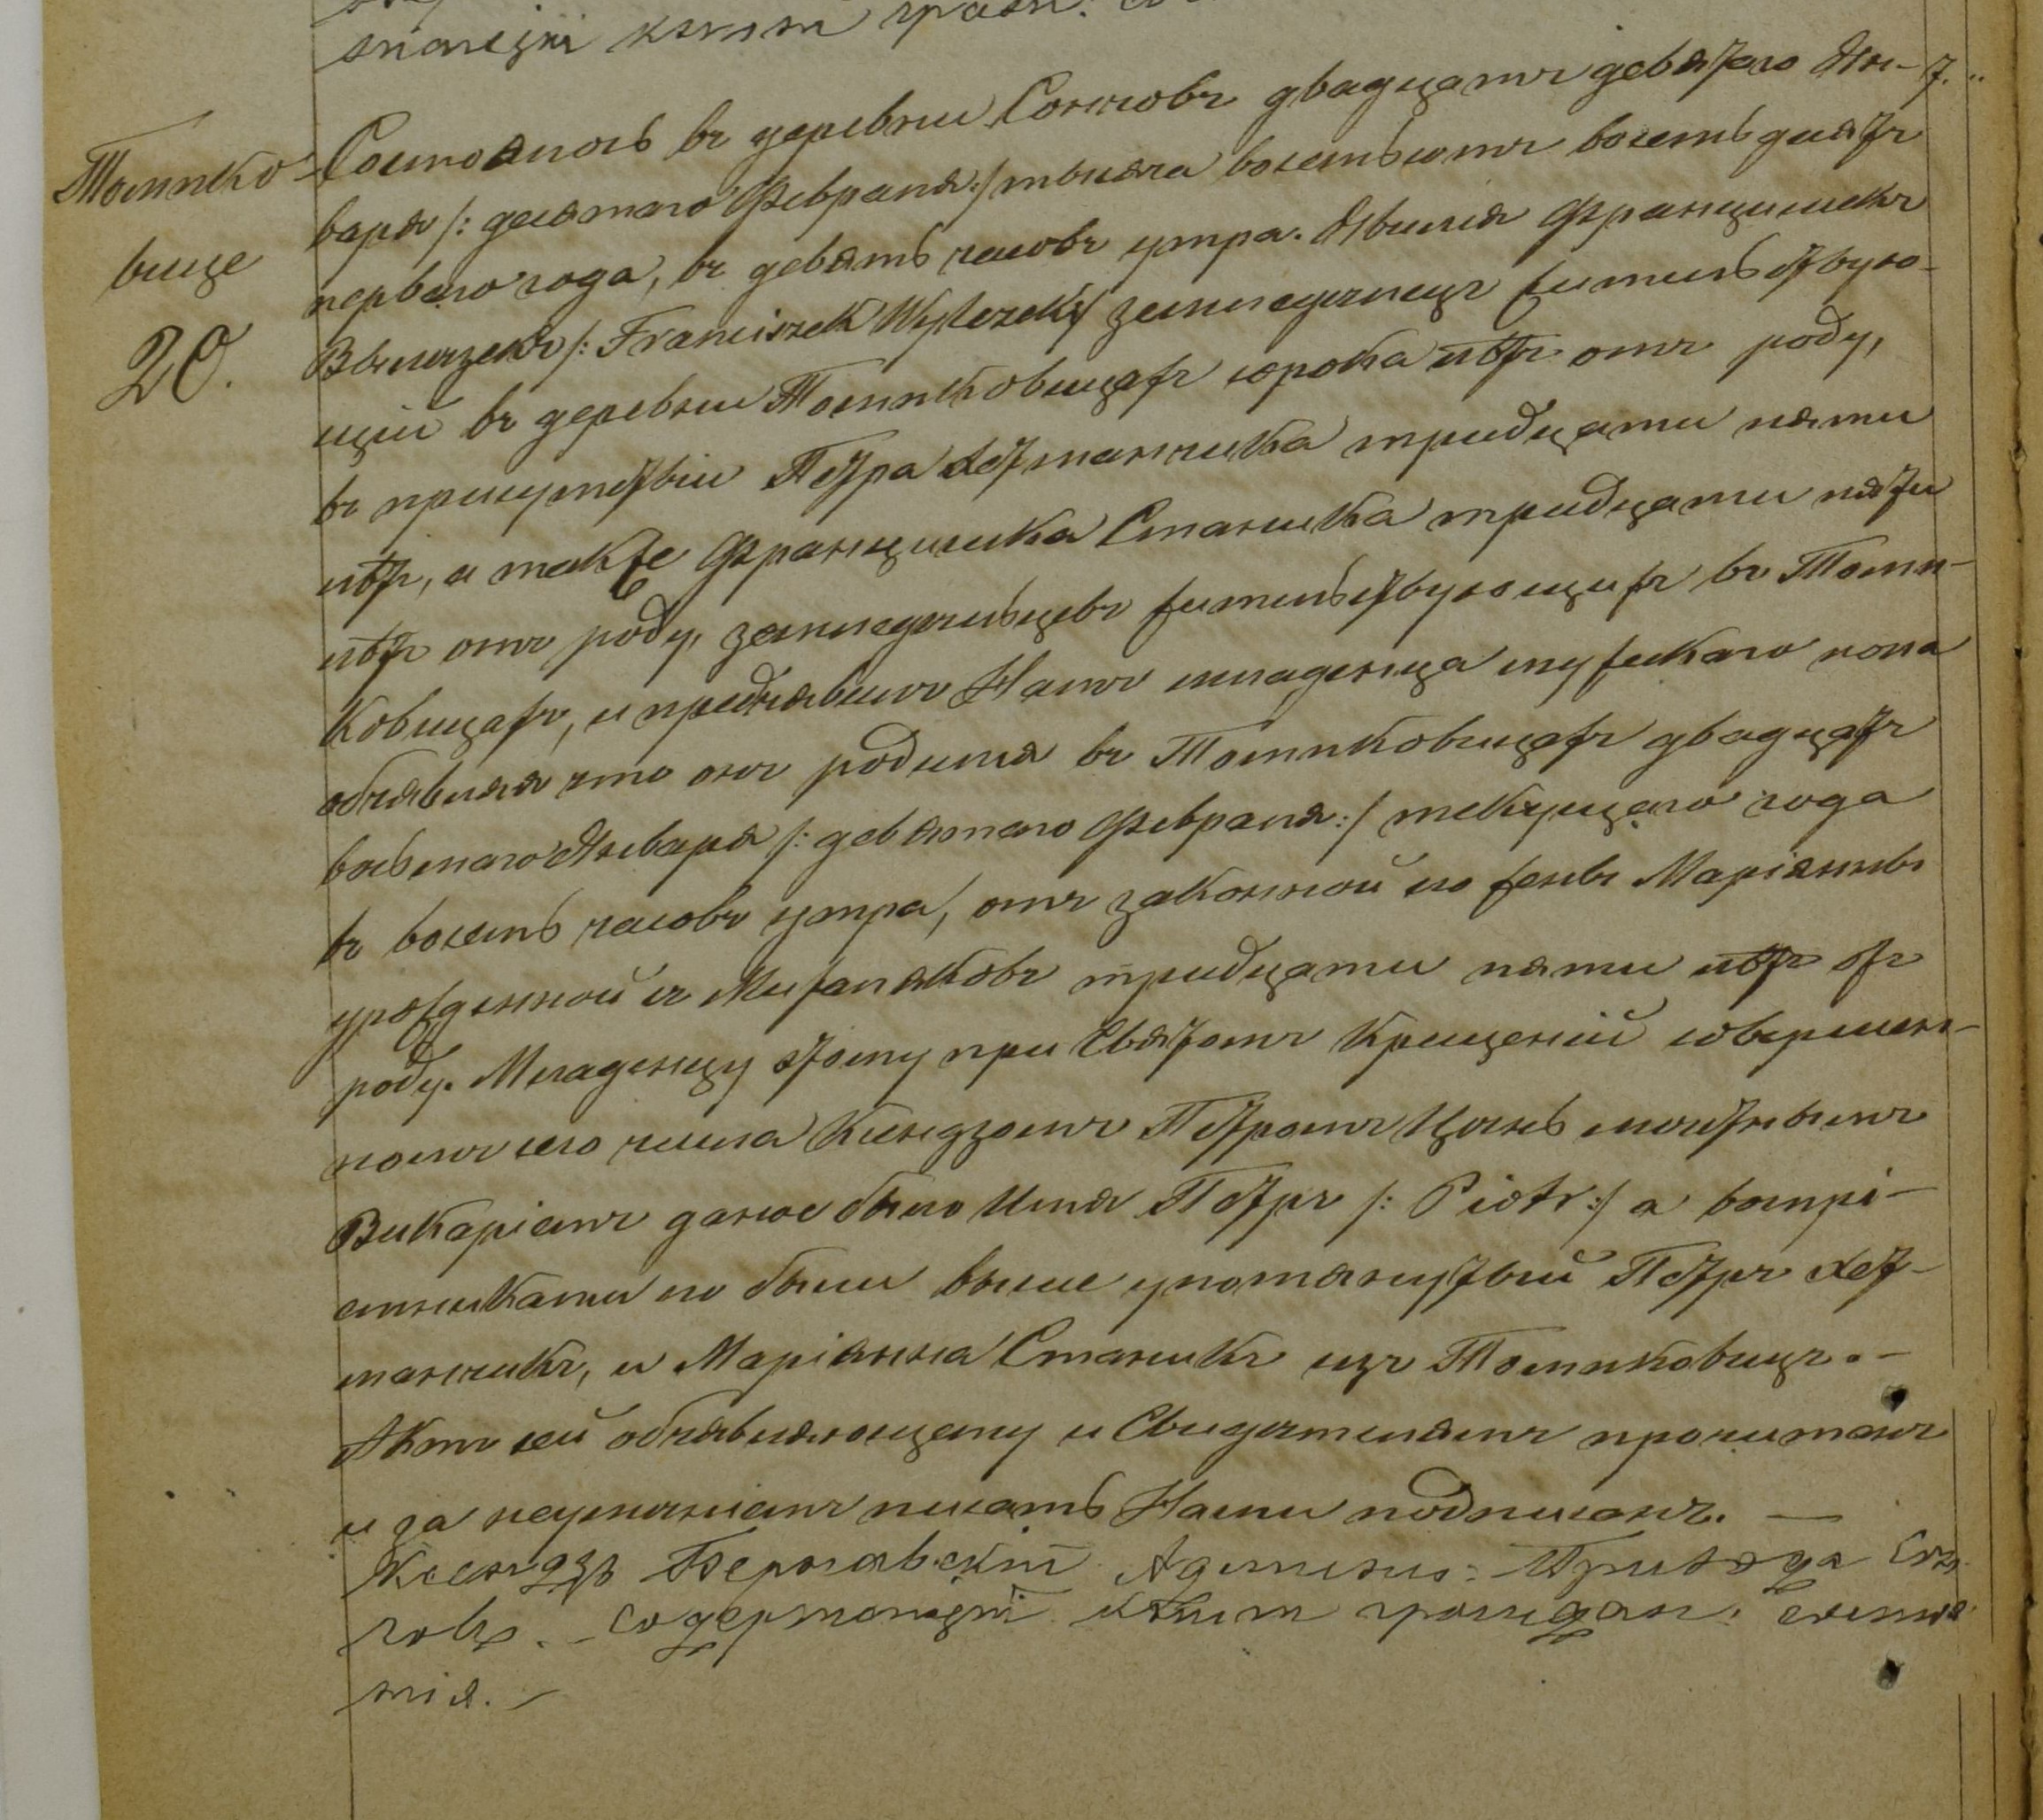 Томпко-
вице
20.
Состоялось въ деревни Сончовъ двадцать девятаго Ян-
варя /: десятаго Февраля :/ тысяча восемьсотъ восемьдесятъ
перваго года, въ девять часовъ утра. Явился Францишекъ
Вылензекъ /: Franciszek Wylezek :/ земледѣлецъ жительствую-
щій въ деревни Томпковицахъ сорока лѣтъ отъ роду,
въ присутствіи Петра Летманчика тридцати пяти
лѣтъ, а также Францишка Станика тридцати пяти
лѣтъ отъ роду, земледѣльцевъ жительствующихъ въ Томп-
ковицахъ, и предъявилъ Намъ младенца мужескаго пола
объявляя что онъ родился въ Томпковицахъ двадцать
восьмаго Января /: девятаго Февраля :/ текущаго года
въ восемь часовъ утра, отъ законной его жены Маріянны
урожденной съ Михаляковъ тридцати пяти лѣтъ отъ
роду. Младенцу этому при Святомъ Крещеніи совершен-
номъ сего числа Ксендзомъ Петромъ мѣстнымъ
Викаріемъ дано было Имя Петръ /: Piotr :/ а воспрі-
емниками его были выше упомянутый Петръ Лет-
манчикъ, и Маріянна Станикъ изъ Томпковицъ. -
Актъ сей объявляющему и Свидѣтелямъ прочитанъ
и за неумѣніемъ писать Нами подписанъ. —
Ксендзъ Админис: Прихода Сон-
човъ. - Содержащій гражданс: состоя-
нія. -